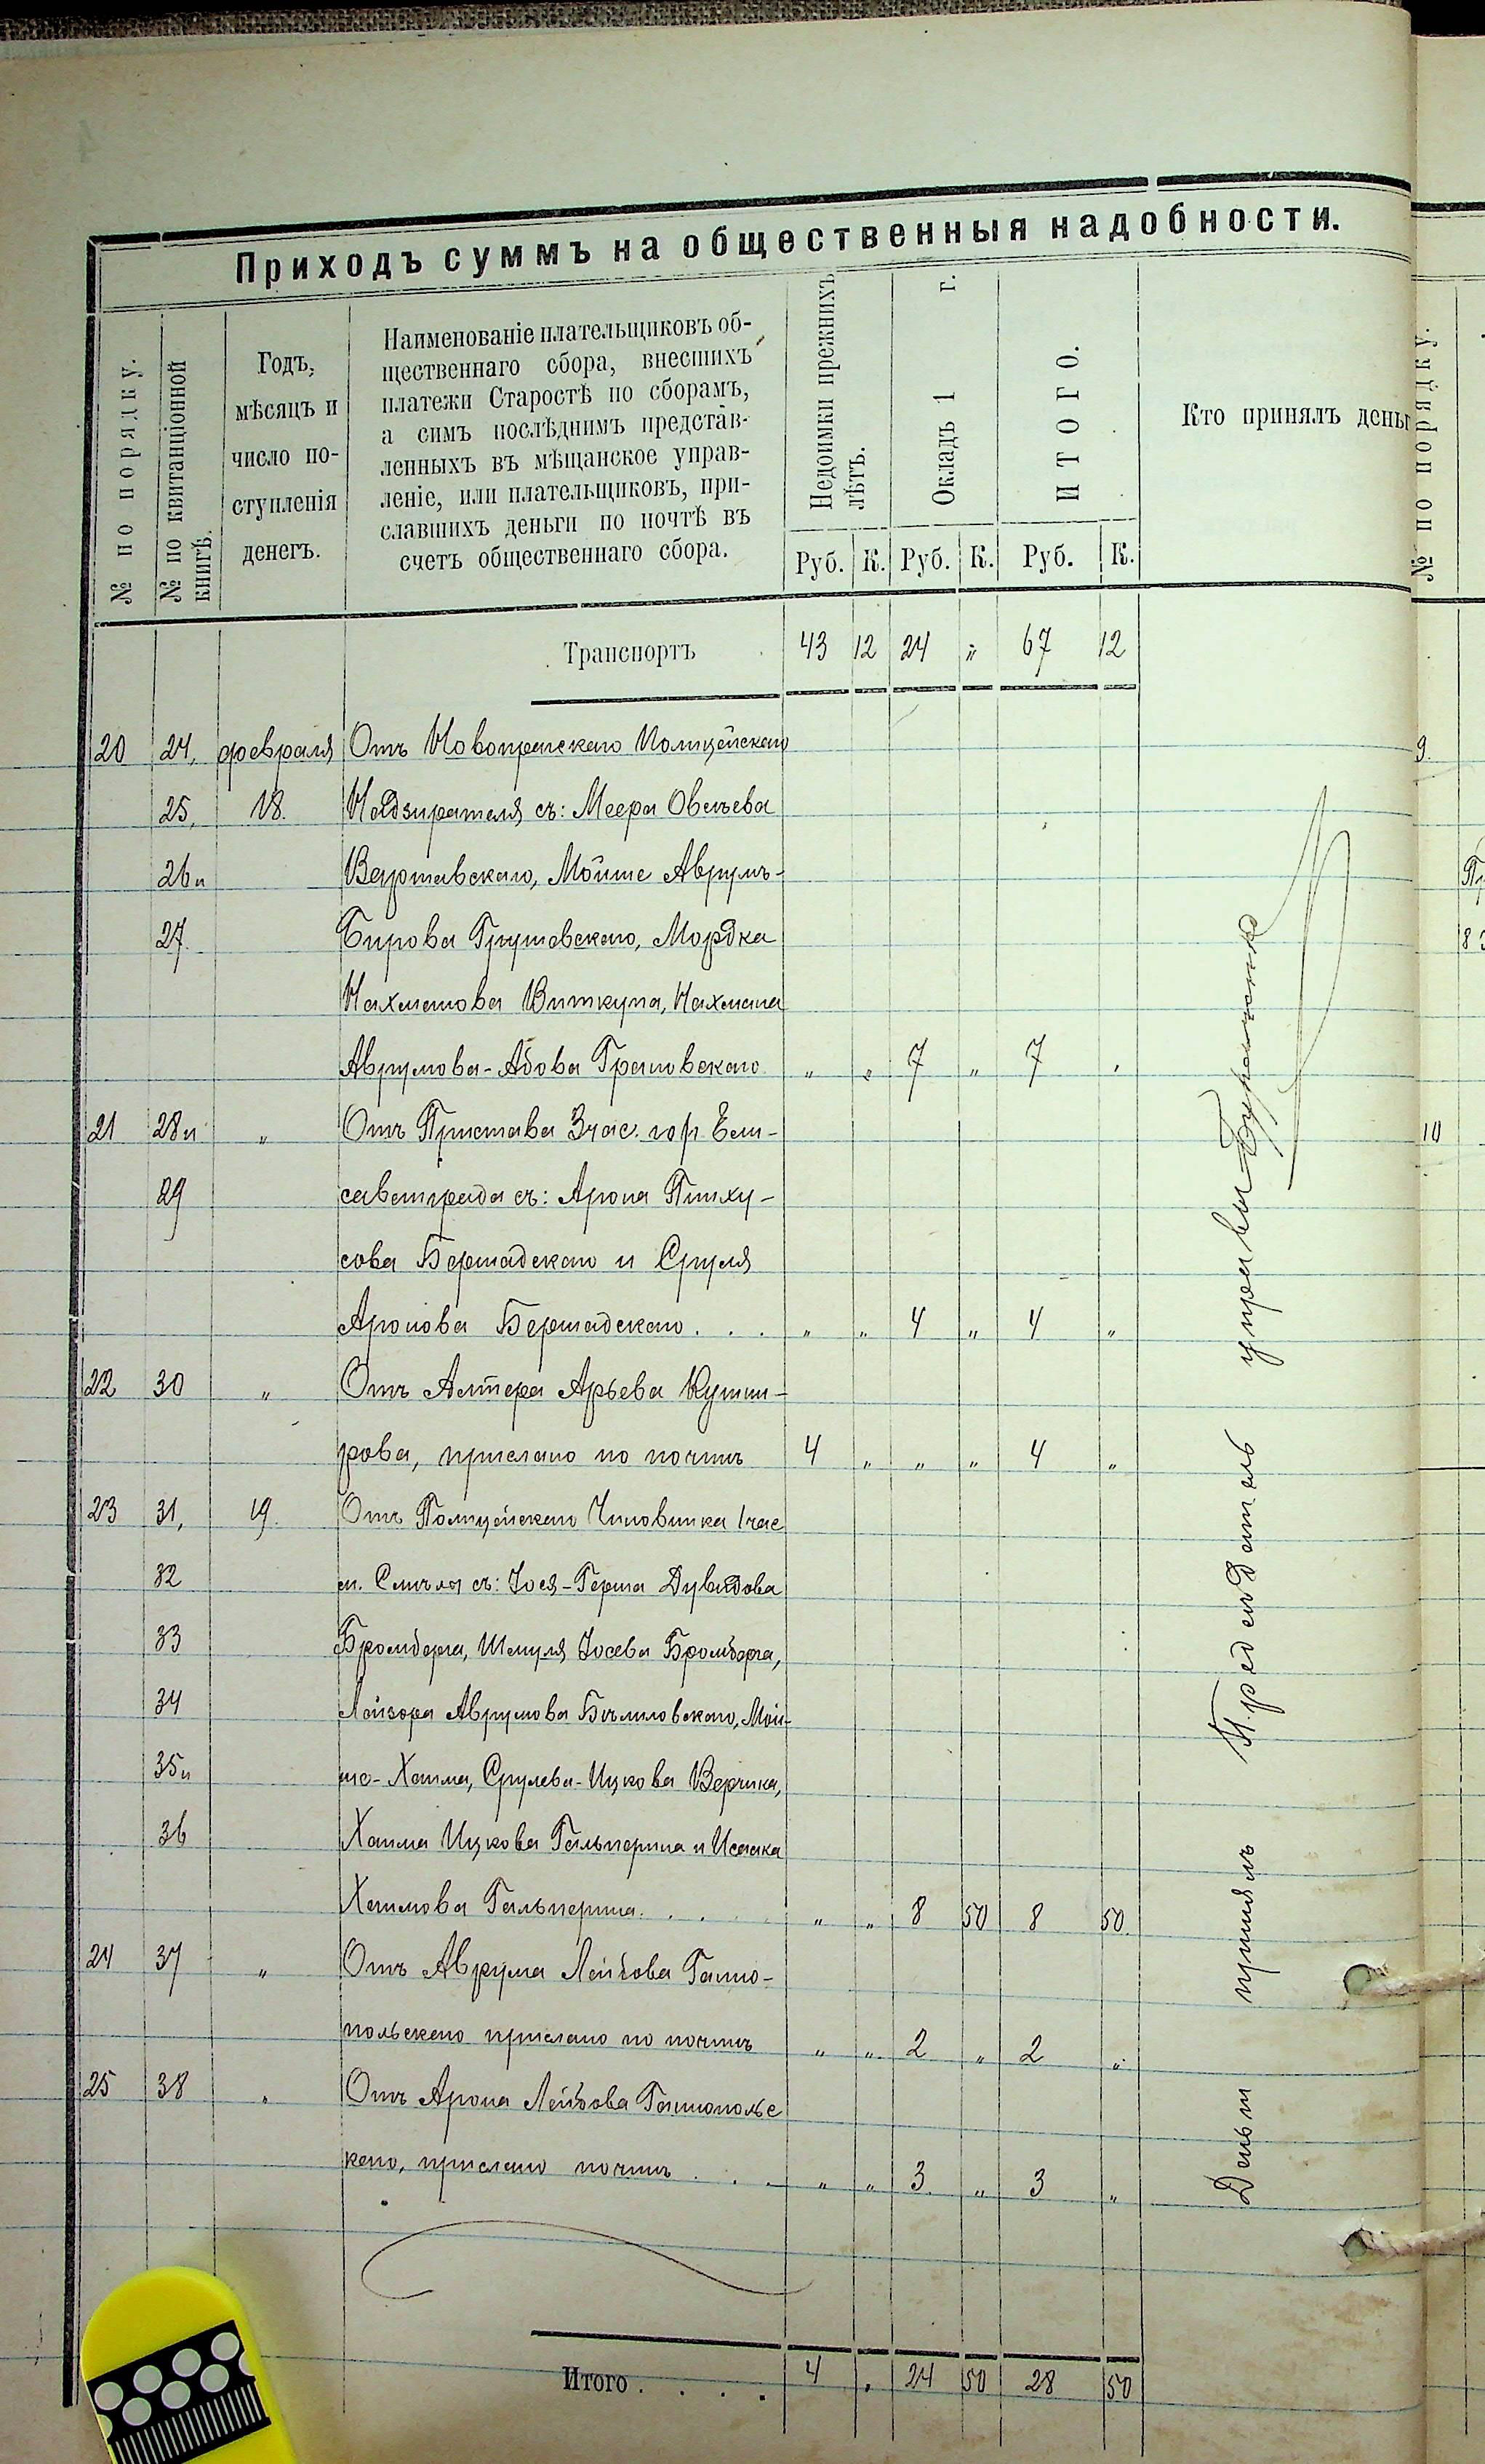 Приходъ суммъ на общественныя надобности.
№ по порядку.
№ по квитанціонной книгѣ.
Годъ, мѣсяцъ и число поступленія денегъ.
Наименованіе плательщиковъ об-
щественнаго сбора, внесшихъ
платежи Старостѣ по сборамъ,
а симъ послѣднимъ представ-
ленныхъ въ мѣщанское управ-
леніе, или плательщиковъ, при-
славшихъ деньги по почтѣ въ
счетъ общественнаго сбора.
Недоимки прежнихъ лѣтъ.
Окладъ 1 г.
ИТОГО.
Кто принялъ деньг
Руб. К. Руб. К. Руб. К.
Транспортъ 43 12 24 „ 67 12
20 24, февраля Отъ Новопражскаго Полицейскаго
25, 18. Надзирателя съ: Меера Овсѣева
26 и Варшавскаго, Мойше Аврумъ-
27. Бирова Грушевскаго, Мордка
Нахманова Виткупа, Нахмана
Аврумова-Абова Грановскаго „ „ 7 „ 7 „
21 28 и „ Отъ Пристава 3 час. гор. Ели-
29 саветграда съ: Арона Пинху-
сова Бершадскаго и Сруля
Аронова Бершадскаго . . . „ „ 4 „ 4 „
22 30 „ Отъ Алтера Арьева Кушни-
рова, прислано по почтѣ 4 „ „ „ 4 „
23 31, 19. Отъ Полицейскаго Чиновника 1 час
32 м. Смѣла съ: Іося-Герша Дувидова
33 Бромберга, Шмуля Іосева Бромберга,
34 Лейзора Аврумова Бѣлиловскаго, Мой-
35 и ше-Хаима, Срулева-Ицкова Верника,
36 Хаима Ицкова Гальперина и Исаака
Хаимова Гальперина . . . „ „ 8 50 8 50.
24 37 „ Отъ Аврума Лейбова Ганно-
польскаго прислано по почтѣ „ „ 2 „ 2 „
25 38 „ Отъ Арона Лейбова Ганнопольс
каго, прислано почтѣ . . . „ „ 3. „ 3 „
Итого . . . . 4 „ 24 50 28 50
Деньги принялъ Предсѣдатель управы
9.
10
№ по порядку.